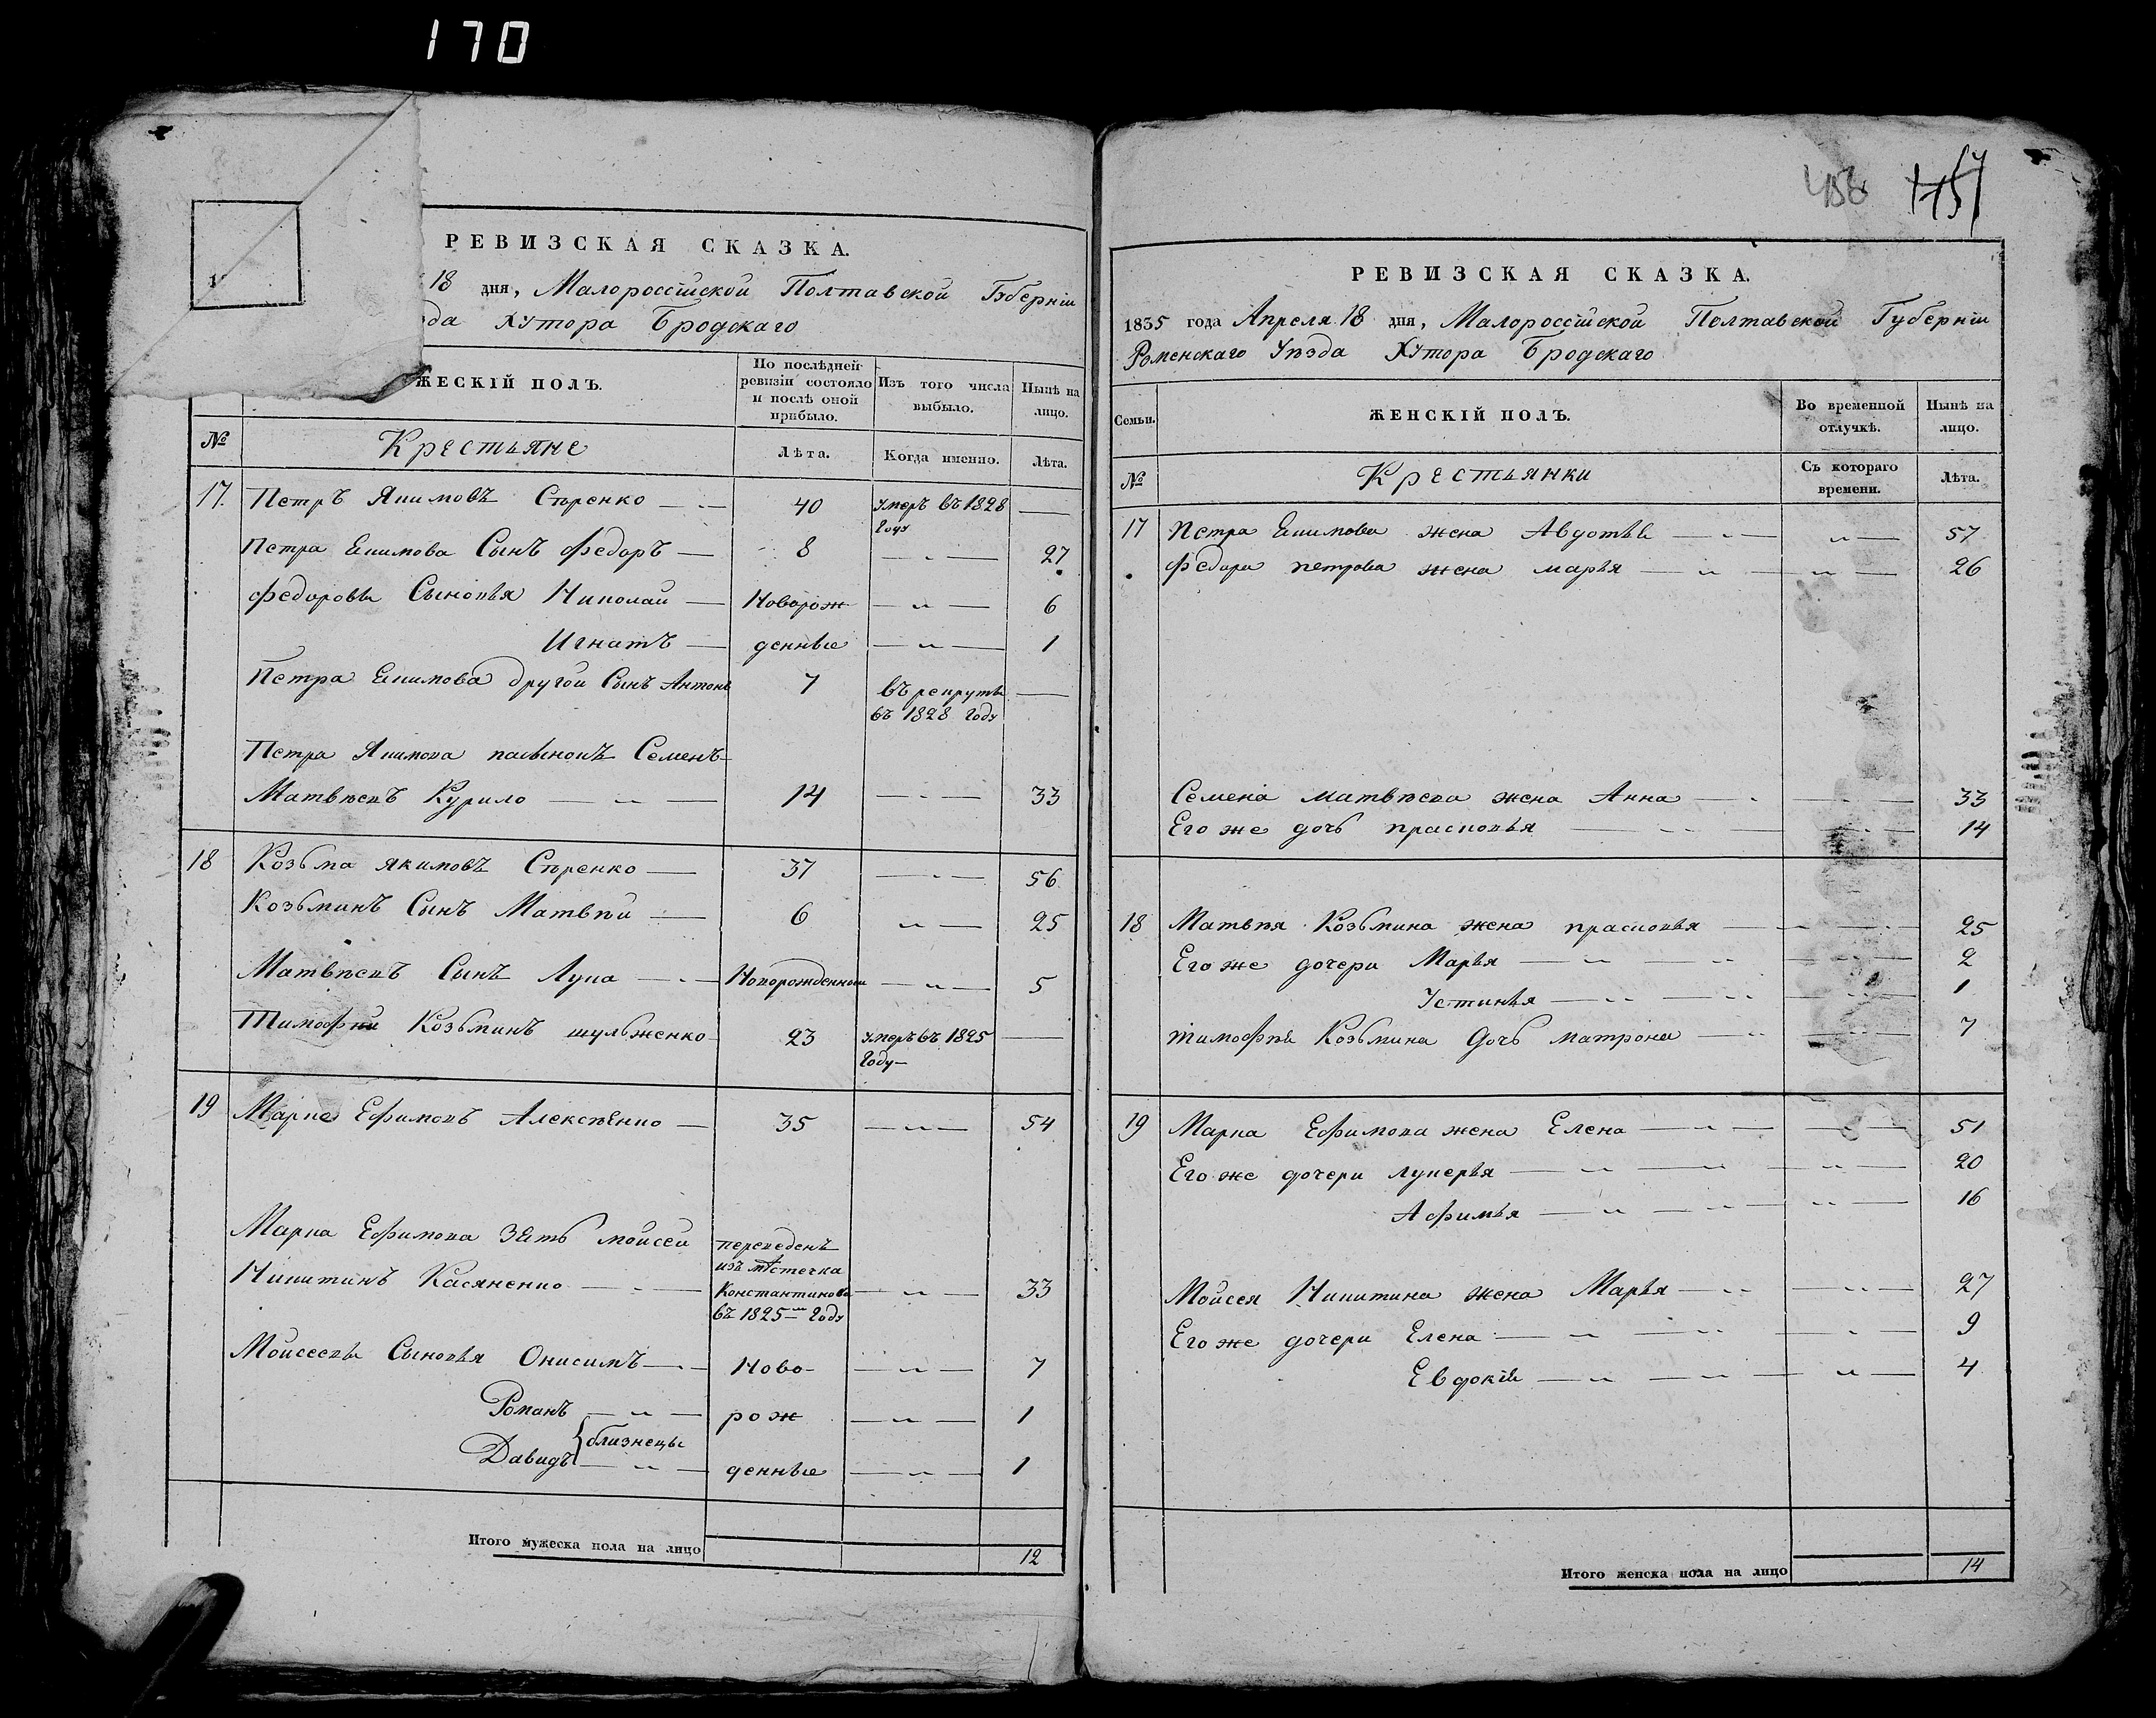 170
РЕВИЗСКАЯ СКАЗКА.
18 дня, Малороссійской Полтавской Губерніи
Хутора Бродскаго
ЖЕСКІЙ ПОЛЪ.
По послѣдней ревизіи состояло и послѣ оной прибыло.
Изъ того числа выбыло.
Нынѣ на лицо.
№ Крестьяне Лѣта. Когда именно. Лѣта.
17. Петръ Якимовъ Сѣренко 40 умеръ въ 1828 году
Петра Екимова Сынъ Федоръ 8 27
Федоровы Сыновья Николай Новорож 6
Игнатъ денные 1
Петра Екимова другой Сынъ Антонъ 7 въ рекруты въ 1828 году
Петра Якимова пасынокъ Семенъ
Матвѣевъ Курило 14 33
18 Козьма Якимовъ Сѣренко 37 56
Козьминъ Сынъ Матвѣй 6 25
Матвѣевъ Сынъ Лука Новорожденный 5
Тимофѣй Козьминъ шульженко 23 умеръ въ 1825 году
19 Марко Ефимовъ Алексѣенко 35 54
Марка Ефимова Зять Мойсей переведенъ
изъ мѣстечка
Никитинъ Касяненко Константинова 33
въ 1825 году
Мойсеевы Сыновья Онисимъ Ново 7
Романъ рож 1
близнецы
Давидъ денные 1
Итого мужеска пола на лицо 12
458 457
РЕВИЗСКАЯ СКАЗКА.
1835 года Апреля 18 дня, Малороссійской Полтавской Губерніи
Роменскаго Уѣзда Хутора Бродскаго
Семьи. ЖЕНСКІЙ ПОЛЪ.
Во временной отлучкѣ.
Нынѣ на лицо.
№ Крестьянки Съ котораго времени. Лѣта.
17 Петра Екимова жена Авдотья 57
Федора петрова жена марья 26
Семена матвѣева жена Анна 33
Его же дочь прасковья 14
18 Матвѣя Козьмина жена прасковья 25
Его же дочери Марья 2
Устинья 1
тимофѣя Козьмина дочь матрона 7
19 Марка Ефимова жена Елена 51
Его же дочери лукерья 20
Афимья 16
Мойсея Никитина жена Марья 27
Его же дочери Елена 9
Евдокія 4
Итого женска пола на лицо 14